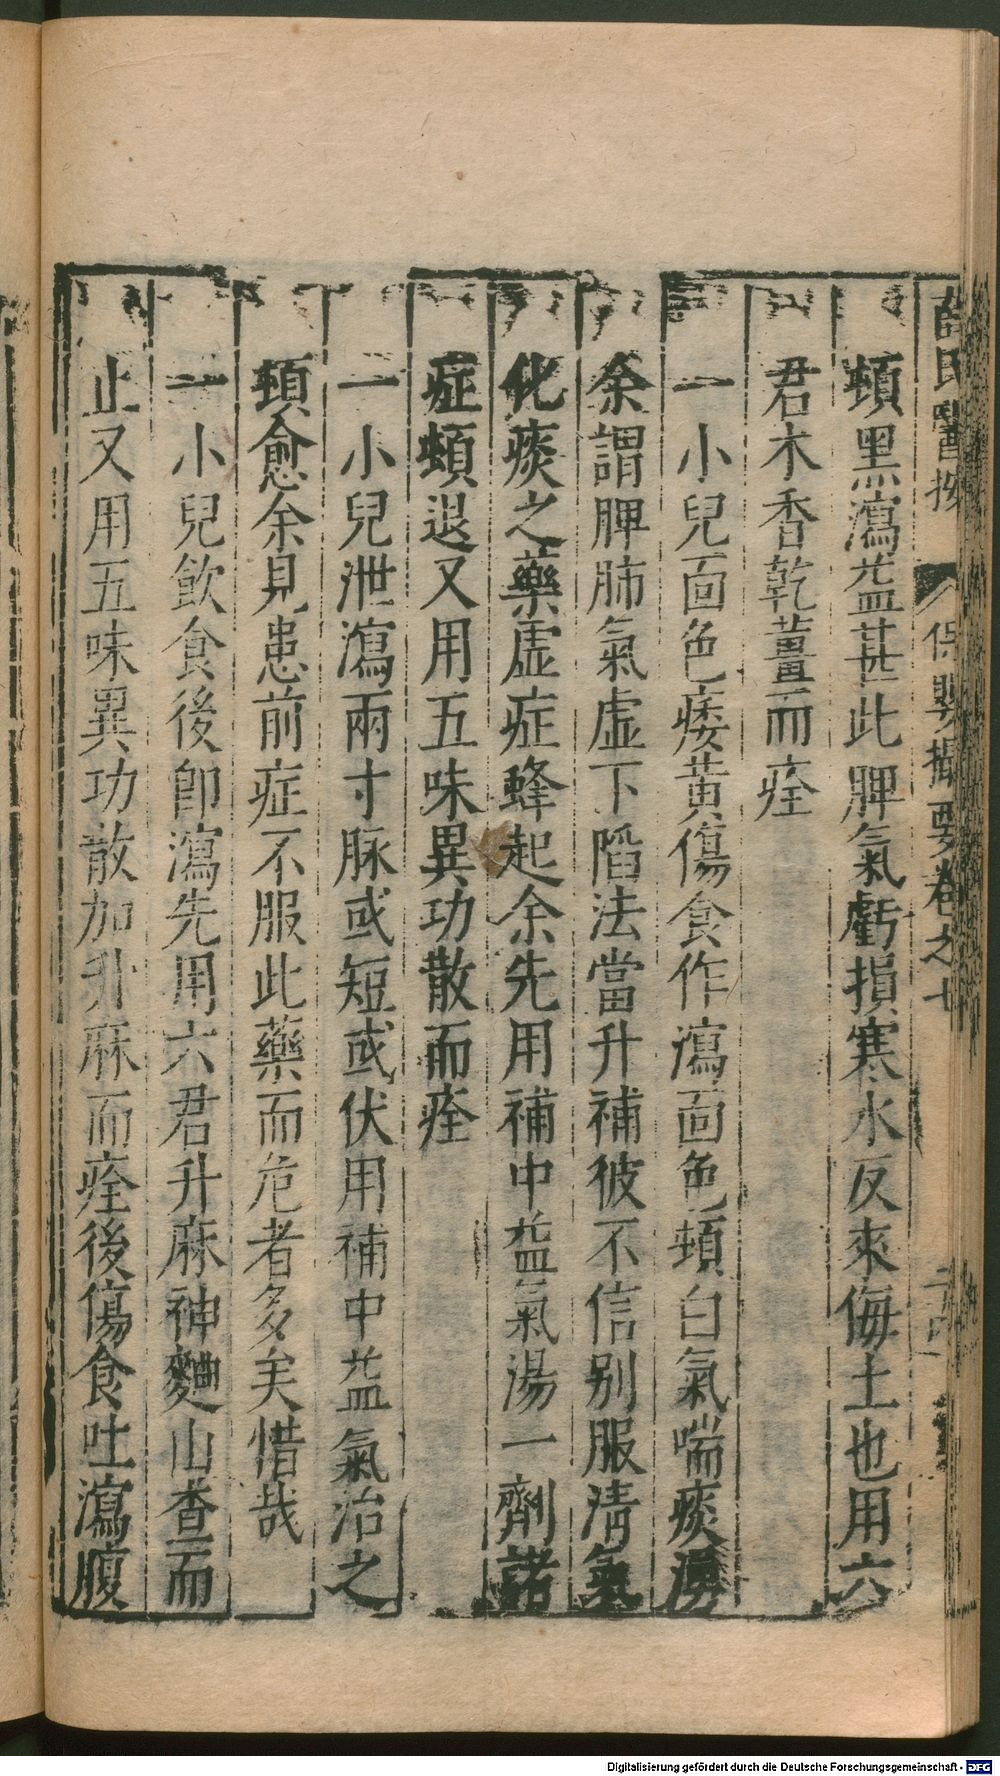 薛氏醫按 保嬰撮要卷之七
頰黑瀉益甚此脾氣虧損寒水反來侮土也用六
君木香乾薑而痊
一小兒面色痿黃傷食作瀉面色頰白氣喘痰湧
余謂脾肺氣虛下陷法當升補彼不信別服清氣
化痰之藥虛症蜂起余先用補中益氣湯一劑諸
症頓退又用五味異功散而痊
一小兒泄瀉兩寸脉或短或伏用補中益氣治之
頓愈余見患前症不服此藥而危者多矣惜哉
一小兒飲食後卽瀉先用六君升麻神麯山查而
止又用五味異功散加升麻而痊後傷食吐瀉腹
Digitalisierung gefördert durch die Deutsche Forschungsgemeinschaft - DFG